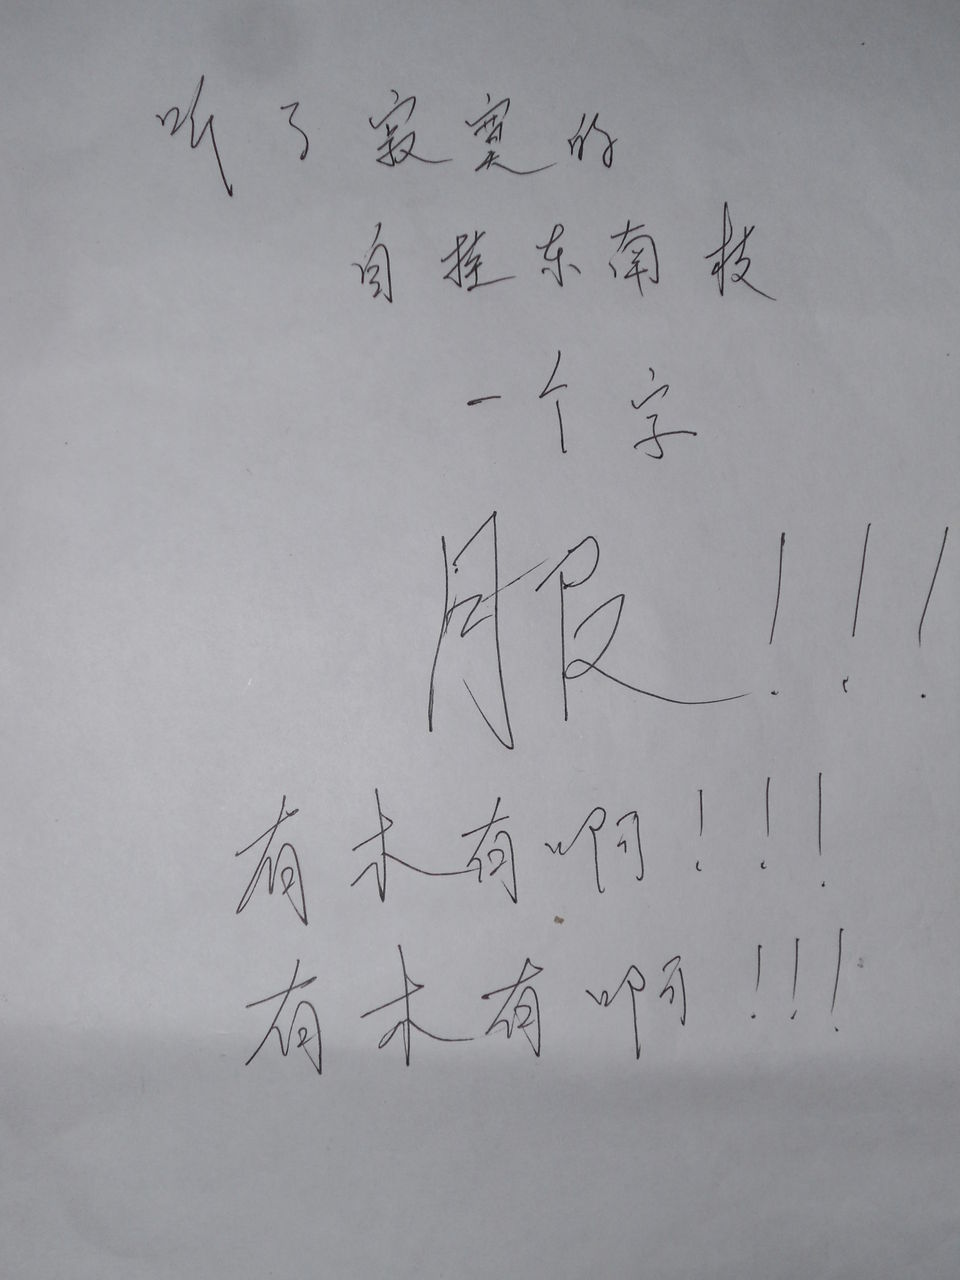 听了寂寞的
自挂东南枝
一个字
服!!!
有木有啊!!!
有木有啊!!!